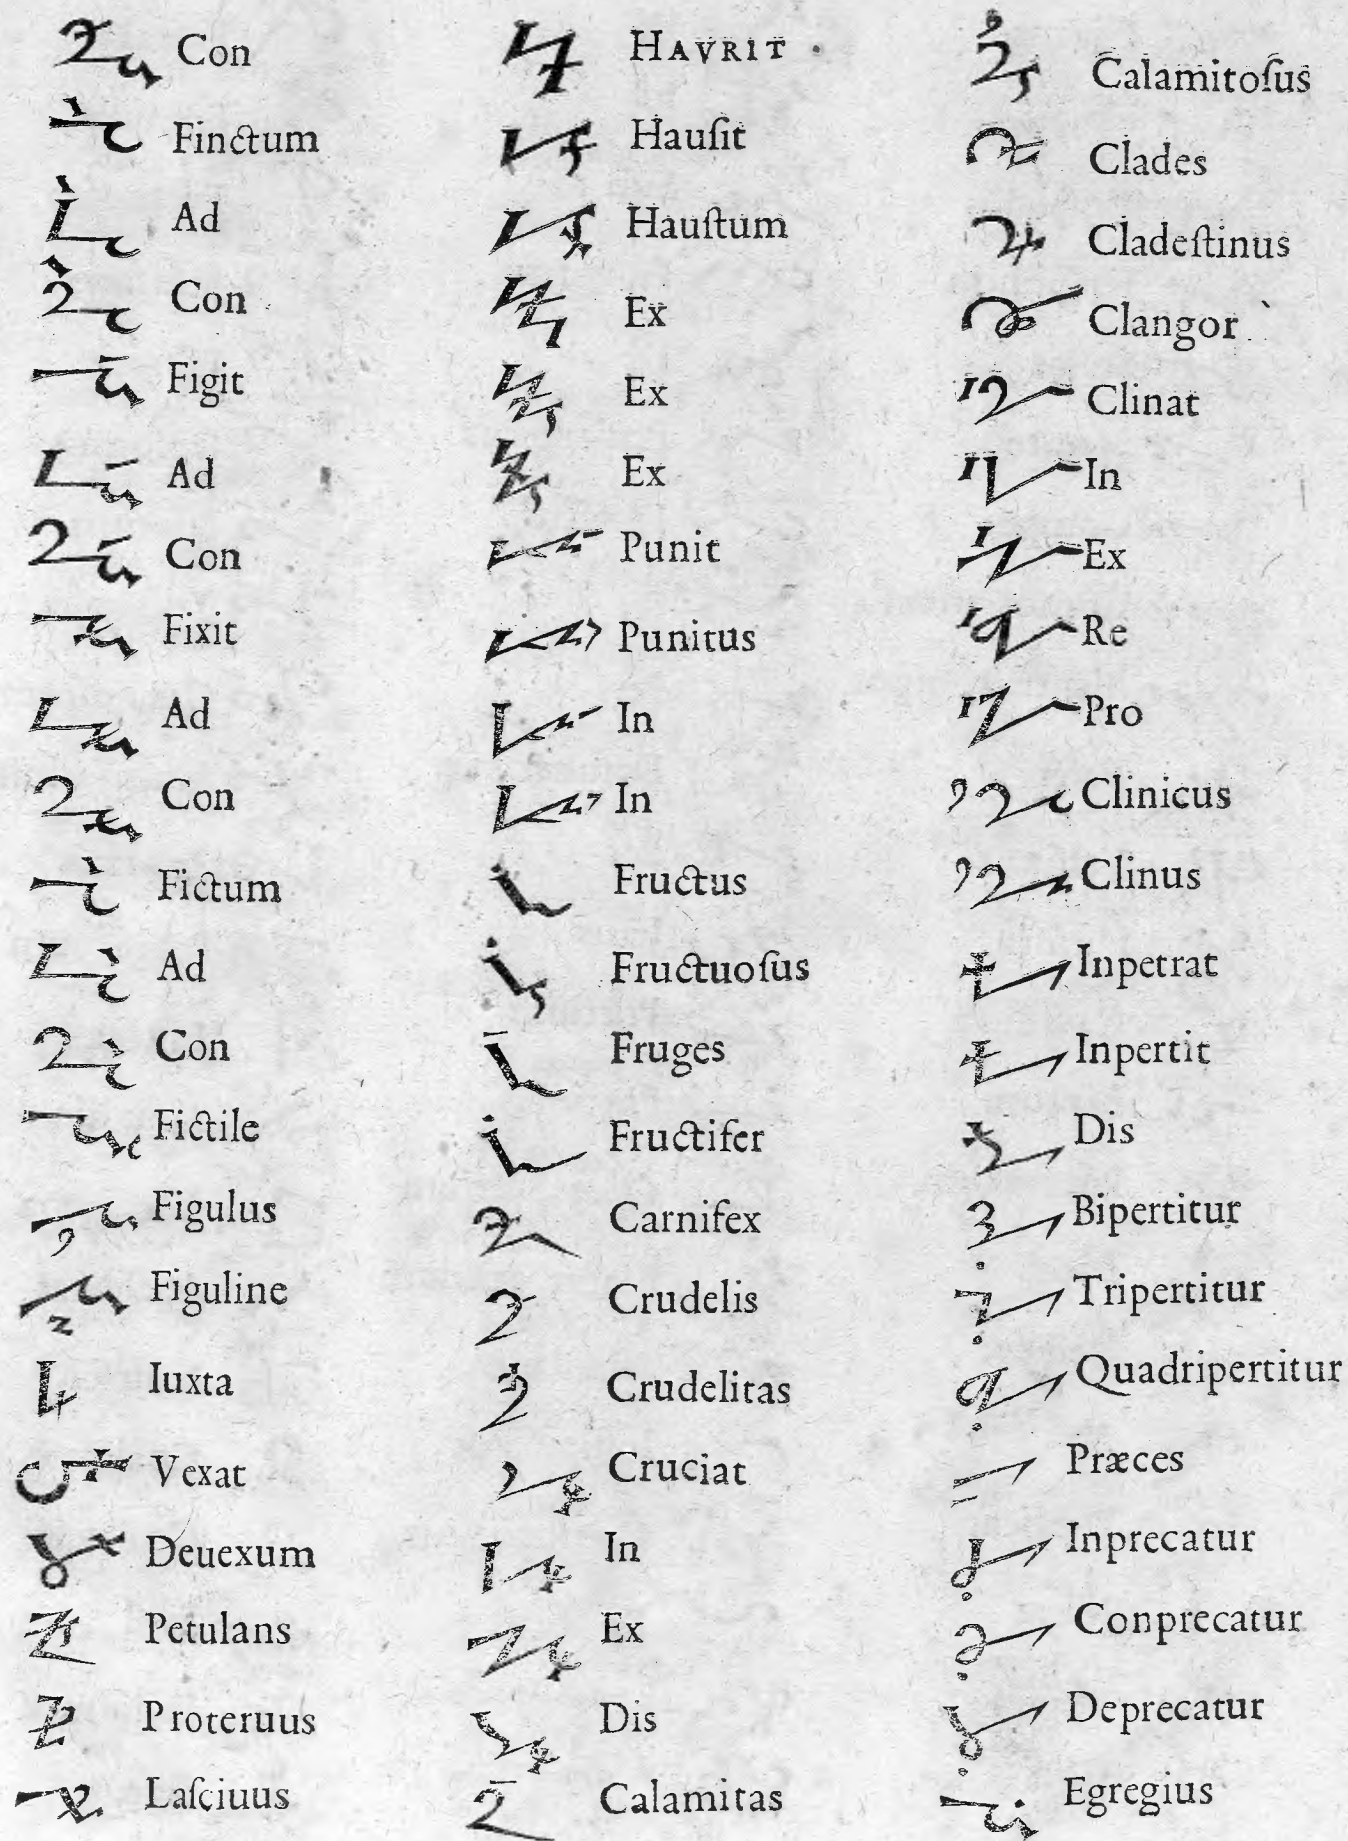 Con
Finctum
Ad
Con
Figit
Ad
Con
Fixit
Ad
Con
Fictum
Ad
Con
Fictile
Figulus
Figuline
Iuxta
Vexat
Deuexum
Petulans
Proteruus
Laſciuus
HAVRIT
Hauſit
Hauſtum
Ex
Ex
Ex
Punit
Punitus
In
In
Fructus
Fructuoſus
Fruges
Fructifer
Carnifex
Crudelis
Crudelitas
Cruciat
In
Ex
Dis
Calamitas
Calamitoſus
Clades
Cladeſtinus
Clangor
Clinat
In
Ex
Re
Pro
Clinicus
Clinus
Inpetrat
Inpertit
Dis
Bipertitur
Tripertitur
Quadripertitur
Præces
Inprecatur
Conprecatur
Deprecatur
Egregius